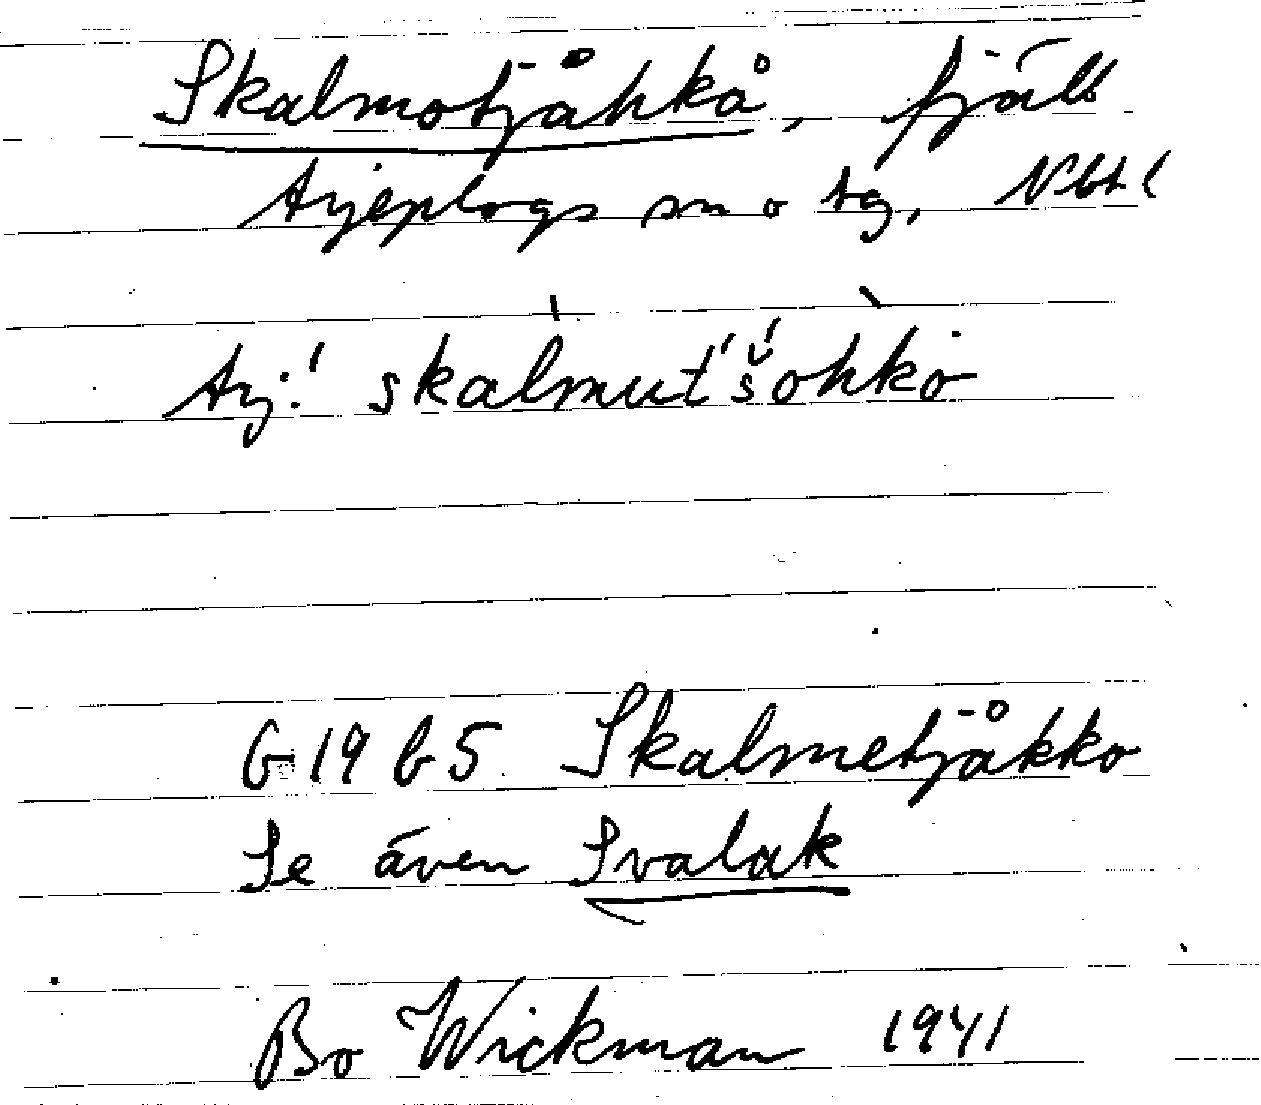 Skalmotjåhkå, fjäll
Arjeplogs sn o tg, Nbt l
Arj: skàlmut́š́òhkȯ
G 1965 Skalmetjåkko
Se även Svalak
Bo Wickman 1941